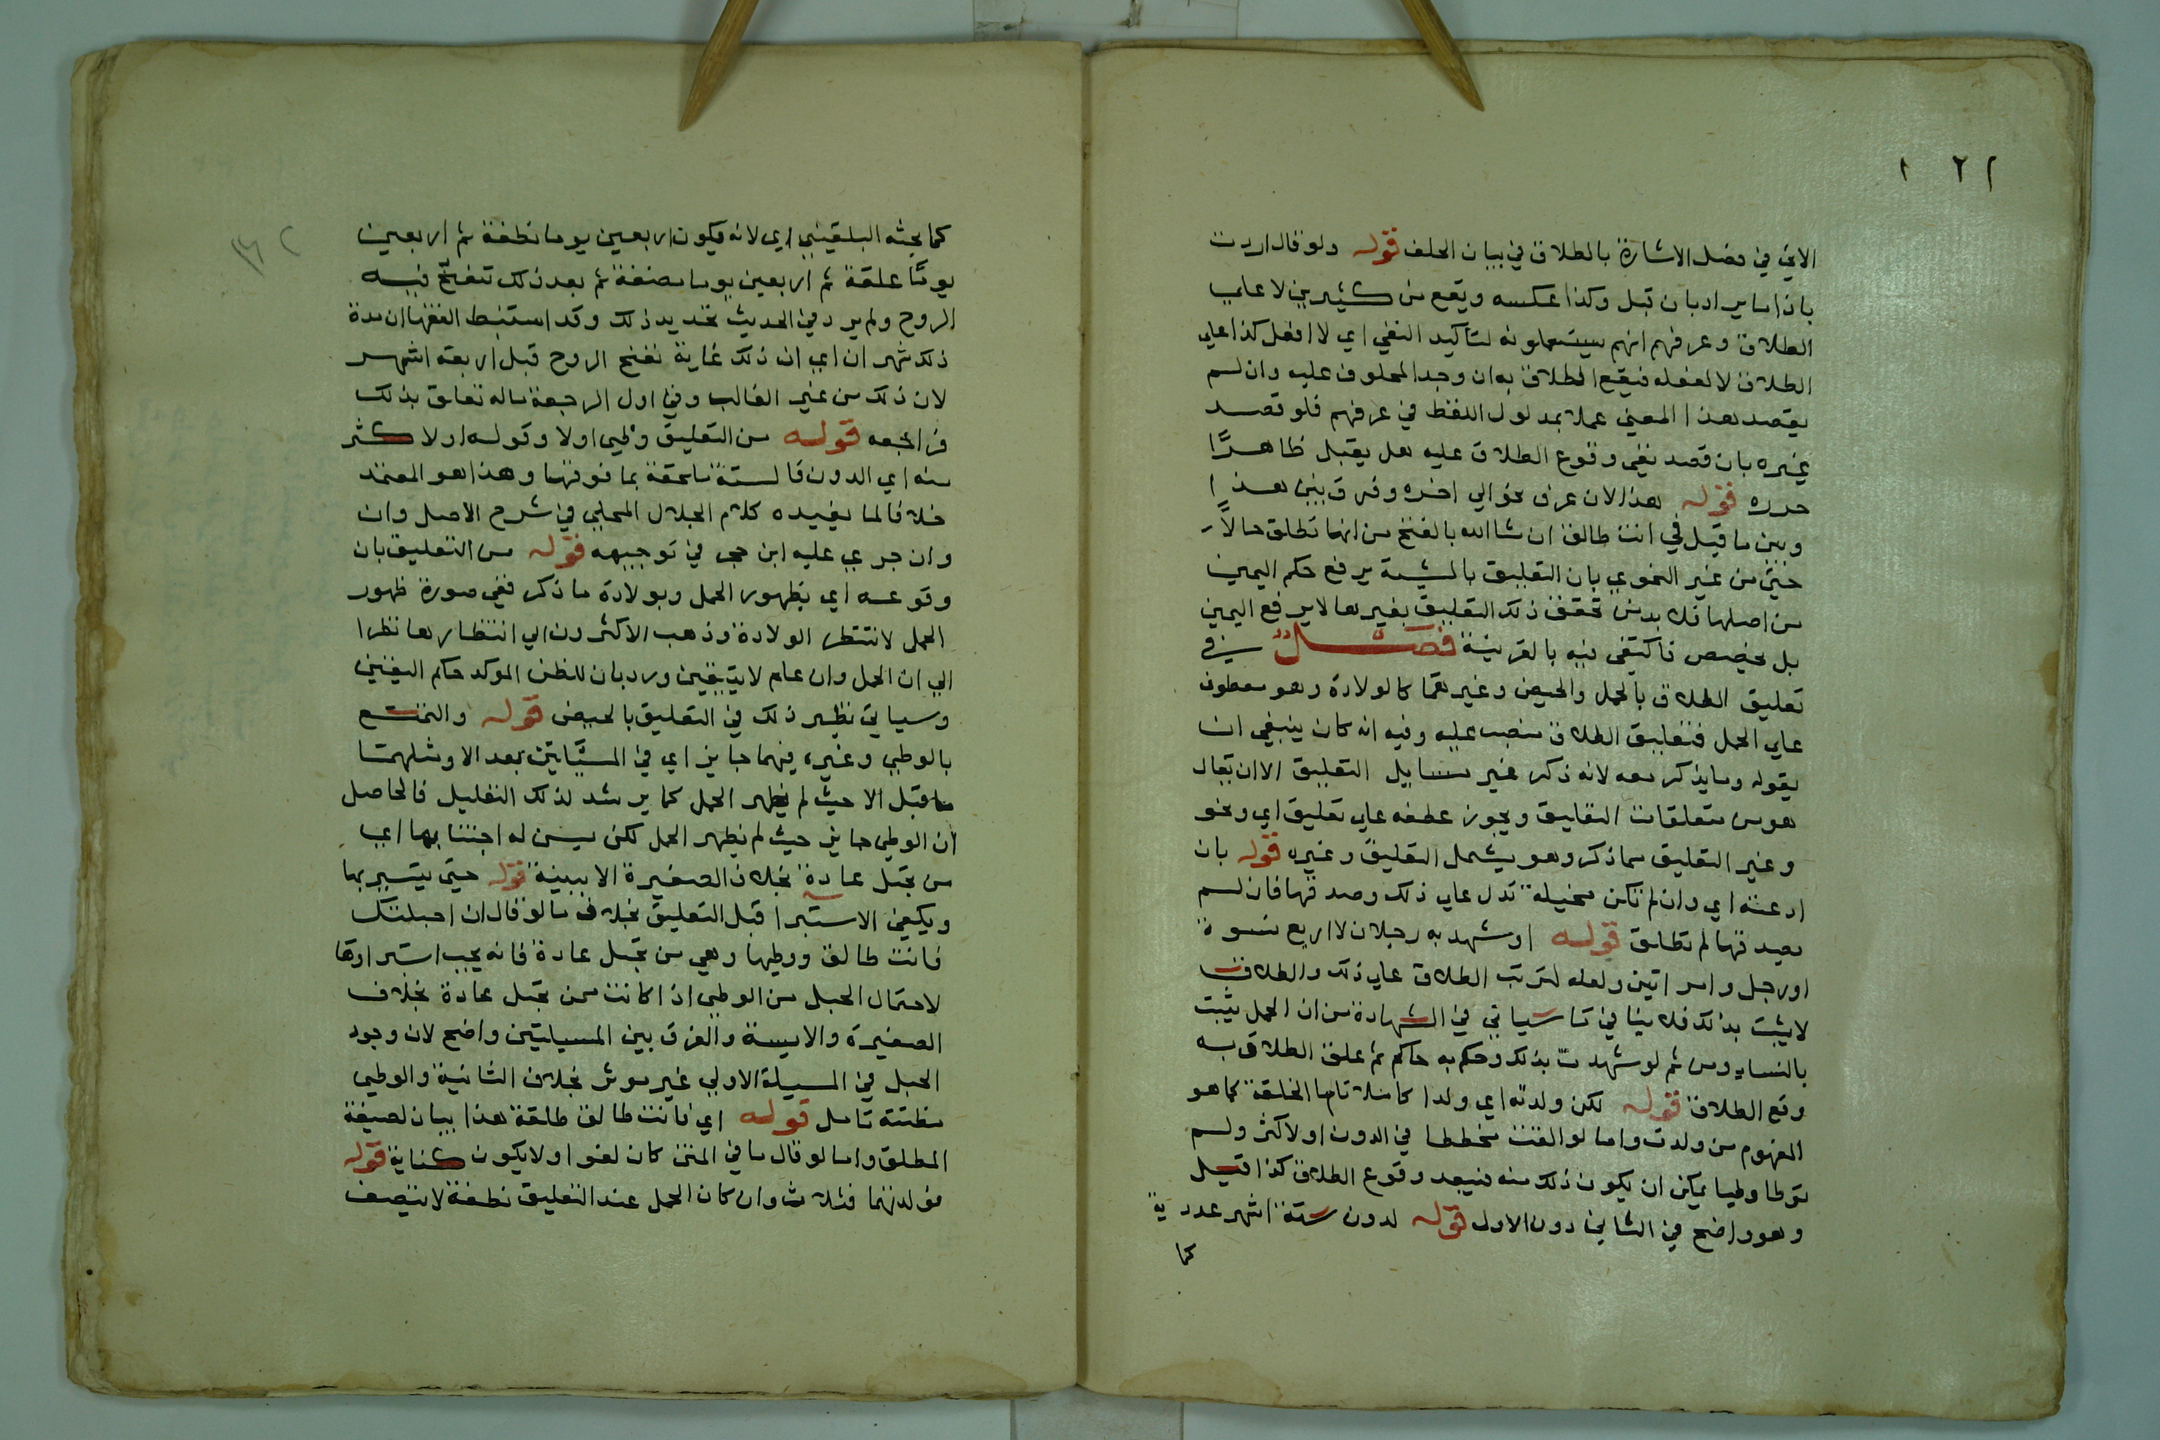 ١ ٢٢
الاتي في فصل الاشارة بالطلاق في بيان الحلف قوله ولو قال اردت
باذا ما يراد بان قبل وكذا عكسه ويقع من كثيرين لا علي
الطلاق وعرفهم انهم يستعملونه لتاكيد النفي اي لا افعل كذا علي
الطلاق لا افعله فيقع الطلاق به ان وجد المحلوف عليه وان لم
يقصد هذا المعني عملا بمدلول اللفظ في عرفهم فلو قصد
غيره بان قصد نفي وقوع الطلاق عليه هل يقبل ظاهرًا
حرره قوله هذا لان عرف نحو الي اخره وفرق بين هذا
وبين ما قيل في انت طالق ان شا الله بالفتح من انها تطلق حالاً
حتي من غير النحوي بان التعليق بالمشيئة يرفع حكم اليمين
من اصلها فلا بد من تحقق ذلك التعليق بغيرها لا يرفع اليمين
بل يخصص فاكتفي فيه بالقرينة فصل في
تعليق الطلاق بالحمل والحيض وغيرهما كالولادة وهو معطوف
علي الحمل فتعليق الطلاق منصب عليه وفيه انه كان ينبغي ان
يقوله وما يذكر معه لانه ذكر غير مسايل التعليق الا ان يقال
هو من متعلقات التعليق ويجوز عطفه علي تعليق اي ونحو
وغير التعليق مما ذكر وهو يشمل التعليق وغيره قوله بان
ادعته اي وان لم تكن مخيلة تدل علي ذلك وصدقها فان لم
يصدقها لم تطلق قوله او شهد به رجلان لا اربع نسوة
او رجل وامراتين ولعله لترتب الطلاق علي ذلك والطلاق
لا يثبت بذلك فلا ينافي ما سياتي في الشهادة من ان الحمل يثبت
بالنساء ومن ثم لو شهدت بذلك وحكم به حاكم ثم علق الطلاق به
وقع الطلاق قوله لكن ولدته اي ولدا كاملا تام الخلقة كما هو
المفهوم من ولدت واما لو القت مخططا في الدون او لاكثر ولم
توطا وطيا يمكن ان يكون ذلك منه فيبعد وقوع الطلاق كذا قيل
وهو واضح في الثاني دون الاول قوله لدون ستة اشهر عددية
كما
كما بحثه البلقيني اي لانه يكون اربعين يوما نطفة ثم اربعين
يومًا علقة ثم اربعين يوما مضغة ثم بعد ذلك تنفخ فيه
الروح ولم يرد في الحديث تحديد ذلك وقد استنبط الفقها ان مدة
ذلك شهران اي ان ذلك غاية نفخ الروح قبل اربعة اشهر
لان ذلك من غير الغالب وفي اول الرجعة ما له تعلق بذلك
فراجعه قوله من التعليق وطي اولا وقوله او لاكثر
منه اي الدون فالستة ملحقة بما فوقها وهذا هو المعتمد
خلافا لما يفيده كلام الجلال المحلي في شرح الاصل وان
وان جري عليه ابن حجر في توجيهه قوله من التعليق بان
وقوعه اي بظهور الحمل وبولادة ما ذكر ففي صورة ظهور
الحمل لا تنتظر الولادة وذهب الاكثرون الي انتظارها نظرا
الي ان الحمل وان علم لا يتيقن ورد بان للظن الموكد حكم اليقين
وسياتي نظير ذلك في التعليق بالحيض قوله والتمتع
بالوطي وغيره فيهما جايز اي في المسيلتين بعد الا ومثلهما
ما قبل الا حيث لم يظهر الحمل كما يرشد لذلك التعليل فالحاصل
ان الوطي جايز حيث لم يظهر الحمل لكن يسن له اجتنابها اي
من تحبل عادة بخلاف الصغيرة الايسة قوله حتي يستبريها
ويكفي الاستبرا قبل التعليق بخلاف ما لو قال ان احبلتك
فانت طالق ووطيها وهي من تحبل عادة فانه يجب استبراوها
لاحتمال الحبل من الوطي اذا كانت ممن تحبل عادة بخلاف
الصغيرة والايسة والفرق بين المسيلتين واضح لان وجود
الحبل في المسيلة الاولي غير موثر بخلاف الثانية والوطي
مظنته تامل قوله اي فانت طالق طلقة هذا بيان لصيغة
المطلق واما لو قال ما في المتن كان لغوا ولا يكون كناية قوله
فولدتهما فثلاث وان كان الحمل عند التعليق نطفة لا تتصف